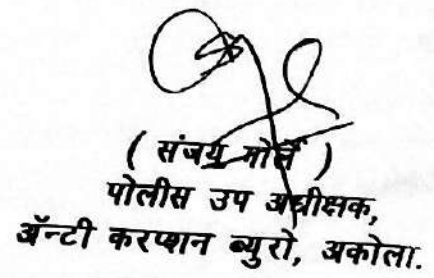 ( संजय गोर्ले )
पोलीस उप अधीक्षक,
ॲन्टी करप्शन ब्युरो, अकोला.